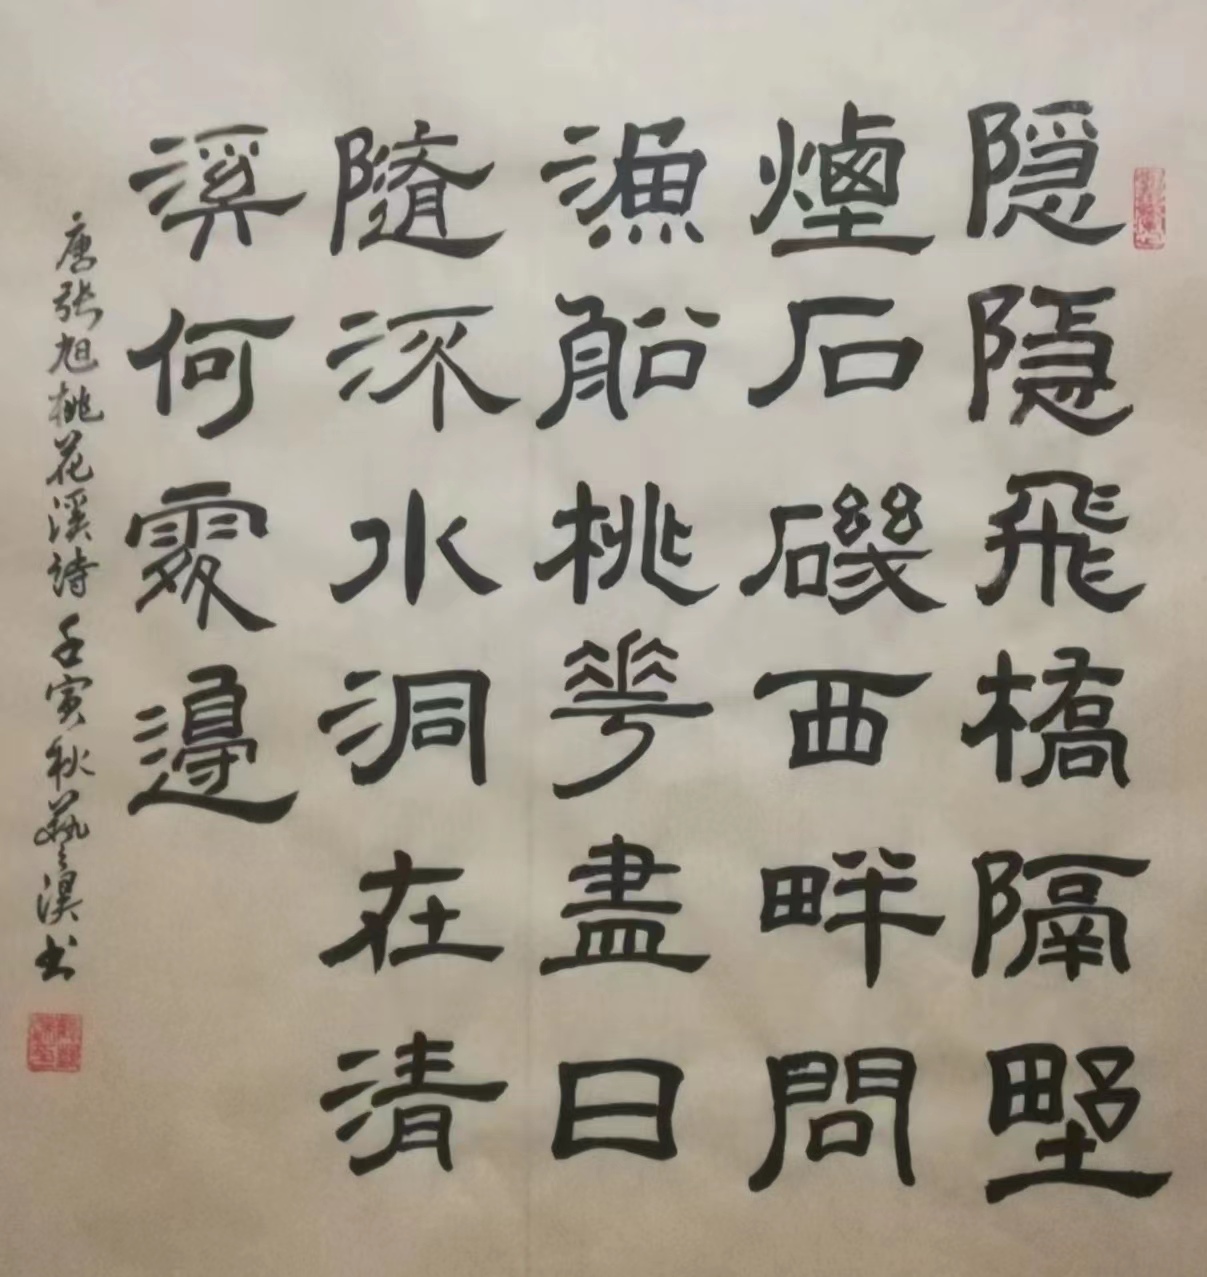 隱隱飛橋隔野
煙石磯西畔問
漁船桃花盡日
隨流水洞在清
溪何處邊
唐張旭桃花溪詩壬寅秋藝溪书